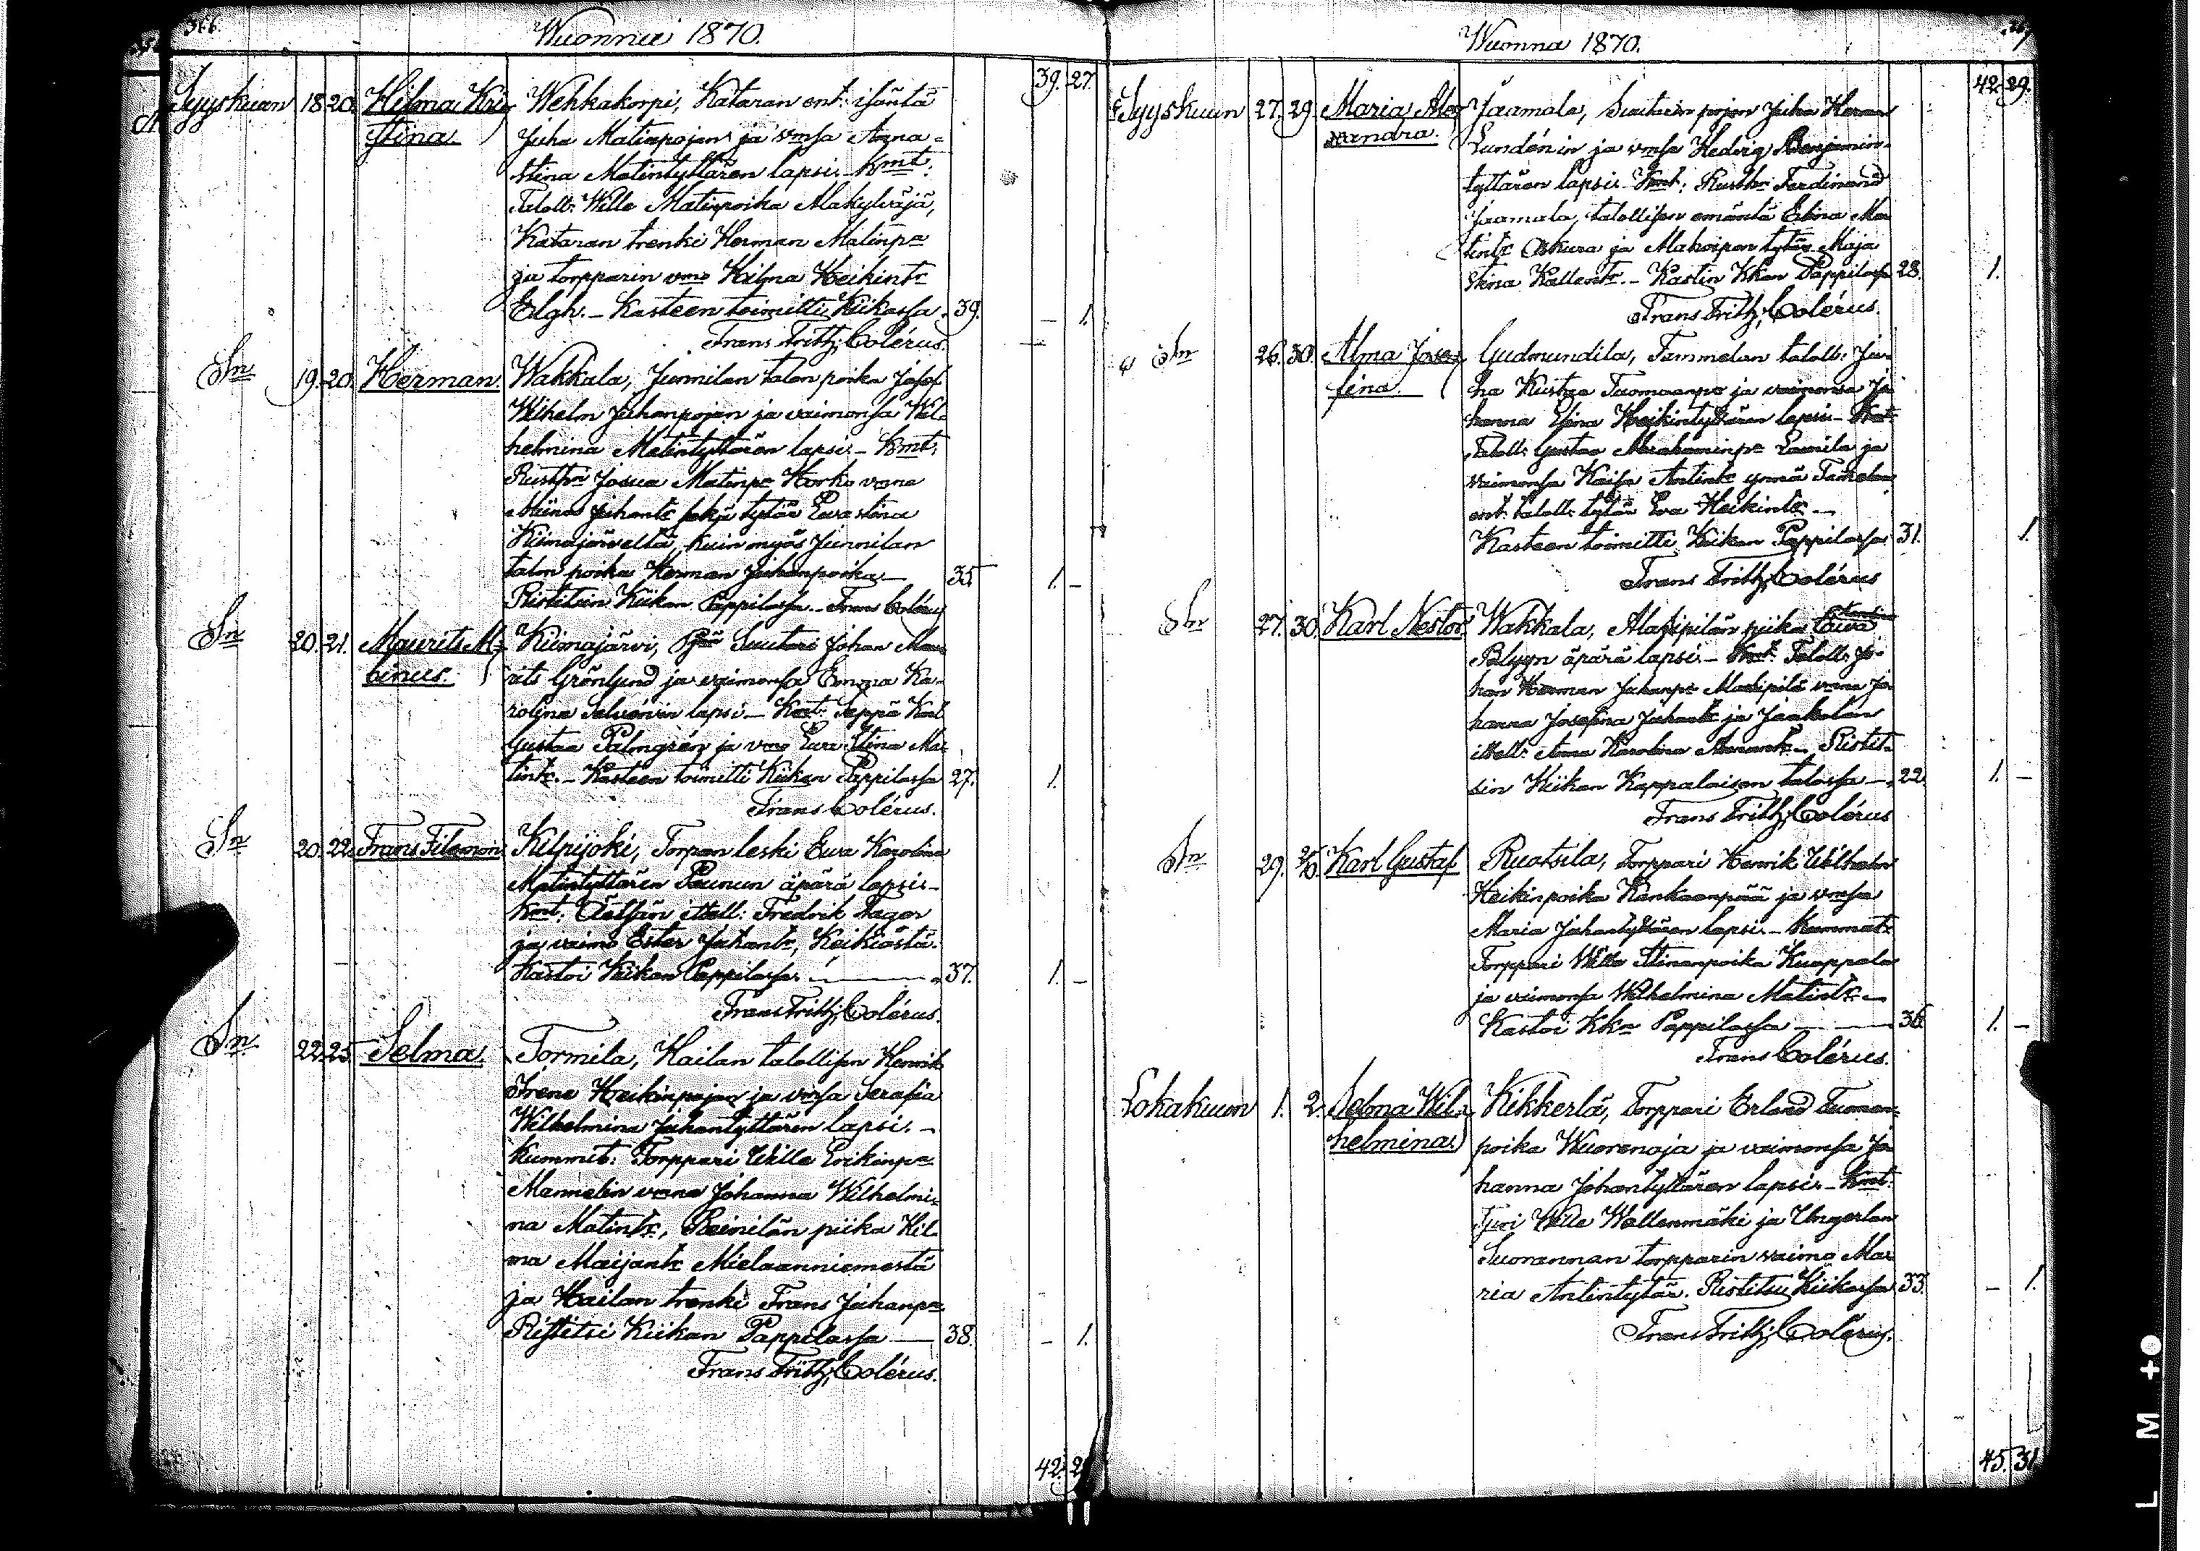 366.
Wuonna 1870.
39. 27.
Syyskuun 18. 20. Hilma Kri- Wehkakorpi, Kataran ent: isäntä
stina. Juha Matinpojan ja vmsa Anna-
stina Matintyttären lapsi. Kmt:
Taloll: Wille Matinpoika Alakylväjä,
Kataran trenki Herman Matinpa
ja torpparin vmo Hilma Heikintr
Elgh. – Kasteen toimitti Kiikassa. 39. – 1.
Frans Frith; Colérus.
Sn 19. 20. Herman. Wakkala, Junnilan talon poika Josef
Wilhelm Juhanpojan ja vaimonsa Wil-
helmina Matintyttären lapsi. – Kmt:
Rusth: Josua Matinpa Korko vmo
Miina Juhantr sekä tytär Eeva Stina
Kiimajärveltä, kuin myös Junnilan
talon poika Herman Juhanpoika. – 35. 1. –
Ristitiin Kiikan Pappilassa. – Frans Colérus
Sn 20. 21. Maurits Al- Kiimajärvi, Suutari Johan Mau-
binus. rits Grönlund ja vaimonsa Emma Ka-
rolina Selvenin lapsi. – Kmt: Seppä Karl
Gustaa Palmgrén ja vmo Eeva Stina Ma-
tintr. – Kasteen toimitti Kiikan Pappilassa 27. 1.
Frans Colérus.
Sn 20. 22. Frans Filemon Kilpijoki, Torpan leski Ewa Karolina
Matintyttären Paunun äpärä lapsi. –
Kmt: ittell: Fredrik Fager
ja vaimo Ester Juhantr, Keikiöstä.
Kastoi Kiikan Pappilassa. – 37. 1. –
Frans Frith; Colérus.
Sn 22. 25. Selma. Tormila, Hailan talollisen Henrik
Irene Heikinpojan ja vmsa Serafia
Wilhelmina Juhantyttären lapsi. –
Kummit: Torppari Wille Erikinpa
Mannelin vmo Johanna Wilhelmi-
na Matintr, Reinilän piika Hil-
ma Maijantr Mielaanniemestä
ja Hailan trenki Frans Juhanpa.
Ristitsi Kiikan Pappilassa – 38. – 1.
Frans Frith; Colérus.
42.
Wuonna 1870.
42. 29.
Syyskuun 27. 29. Maria Alex- Jaamala, Suutarin pojan Juha Herman
sandra. Lundénin ja vmsa Hedvig Benjamin-
tyttären lapsi. Kmt: Rusth: Ferdinand
Jaamala, talollisen emäntä Erina Ma-
tintr Oskura ja Mahoipan tytär Maja
Stina Kallentr. – Kastin Kkan Pappilassa 28. 1.
Frans Frith; Colérus.
Sn 26. 30. Alma Jose- Gudmundila, Tammelan taloll: Ju-
fina. ha Kustaa Tuomaanpa ja vaimonsa Jo-
hanna Erina Heikintyttären lapsi. – Kmt:
Taloll: Gustaa Abrahaminpa Laurila ja
vaimonsa Kaisa Antintr ynnä Tammelan
ent: taloll: tytär Eva Heikintr. –
Kasteen toimitti Kiikan Pappilassa 31. 1.
Frans Frith; Colérus
Sn 27. 30. Karl Nestor. Wakkala, Alasipilän piika
äpärä lapsi. – Kmt: Taloll: Jo-
han Herman Juhanpa vmo Jo-
hanna Josefina Juhantr ja Jaakolan
ittell: Anna Karolina – Ristit-
sin Kiikan Kappalaisen talossa – 22. 1. –
Frans Frith; Colérus
Sn 29. Karl Gustaf. Ruotsila, Torppari Henrik Wilhelm
Heikinpoika Kankaanpää ja vmsa
Maria Juhantyttären lapsi. – Kummat:
Torppari Wille Stinanpoika Kuoppala
ja vaimonsa Wilhelmina Matintr. –
Kastoi Kkan Pappilassa – 36. 1. –
Frans Colérus.
Lokakuun 1. 2. Selma Wil- Kikkerlä, Torppari Erland Tuoman-
helmina. poika Wuorenoja ja vaimonsa Jo-
hanna Johantyttären lapsi. – Kmt:
Wille Wallenmäki ja Ungerlan
Suorannan torpparin vaimo Ma-
ria Antintytär. Ristitsi Kiikassa 33. – 1.
Frans Frith; Colérus.
45. 31
L M